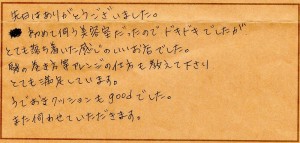 先日はありがとうございました。
初めて伺う美容室だったのでドキドキでしたが
とても落ち着いた感じのいいお店でした。
髪の巻き方やアレンジの仕方も教えて下さり
とても満足しています。
うでおきクッションもgoodでした。
また伺わせていただきます。